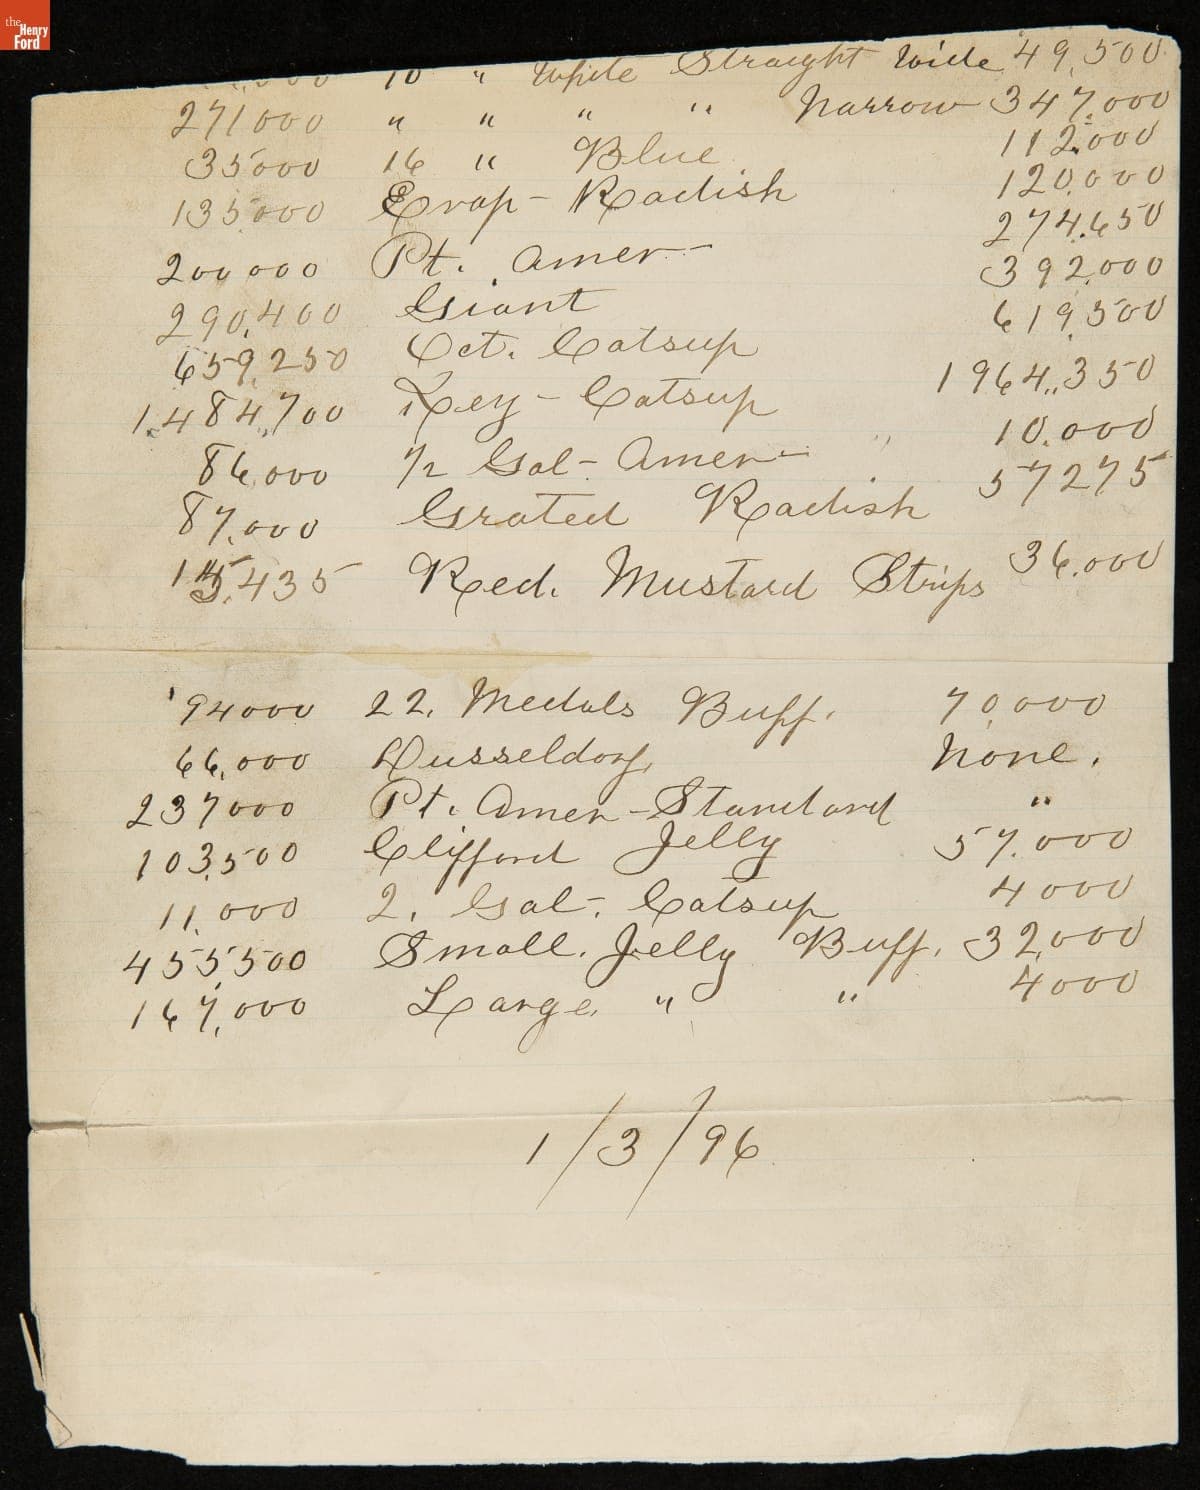 the Henry Ford
10 " White Straight Wide 49,500
271000 " " " " Narrow 347,000
35000 16 " Blue 112,000
135,000 Evap - Radish 120,000
200,000 Pt. Amer - 274,650
290,400 Giant 392,000
659,250 Oct. Catsup 619,500
1,484,700 Key - Catsup 1964,350
86,000 1/2 Gal - Amer - 10,000
87,000 Grated Radish 57275
15,435 Red. Mustard Strips 36,000
94000 22. Medals Buff. 70,000
66,000 Dusseldorf, None.
237000 Pt. Amer - Standard "
103,500 Clifford Jelly 57,000
11,000 2. Gal. Catsup 4000
455,500 Small. Jelly Buff. 32,000
167,000 Large. " " 4000
1/3/96